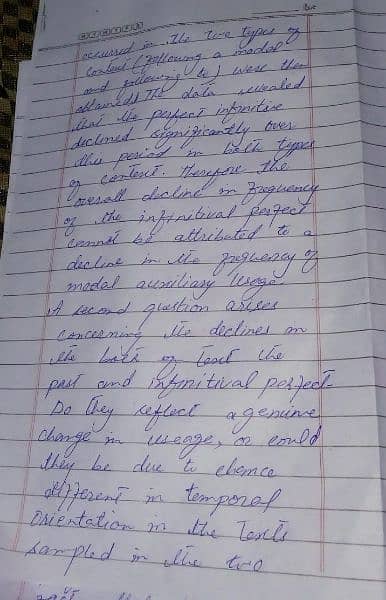 occurred in the two types of
context (following a modal
and following to) were then
obtained. The data revealed
that the perfect infinitive
declined significantly over
this period in both types
of context. Therefore the
overall decline in frequency
of the infinitival perfect
cannot be attributed to a
decline in the frequency of
modal auxiliary usage.
A second question arises
concerning the declines in
the both of text the
past and infinitival perfect
Do they reflect a genuine
change in useage, or could
they be due to chance
different in temporal
Orientation in the Texts
sampled in the two